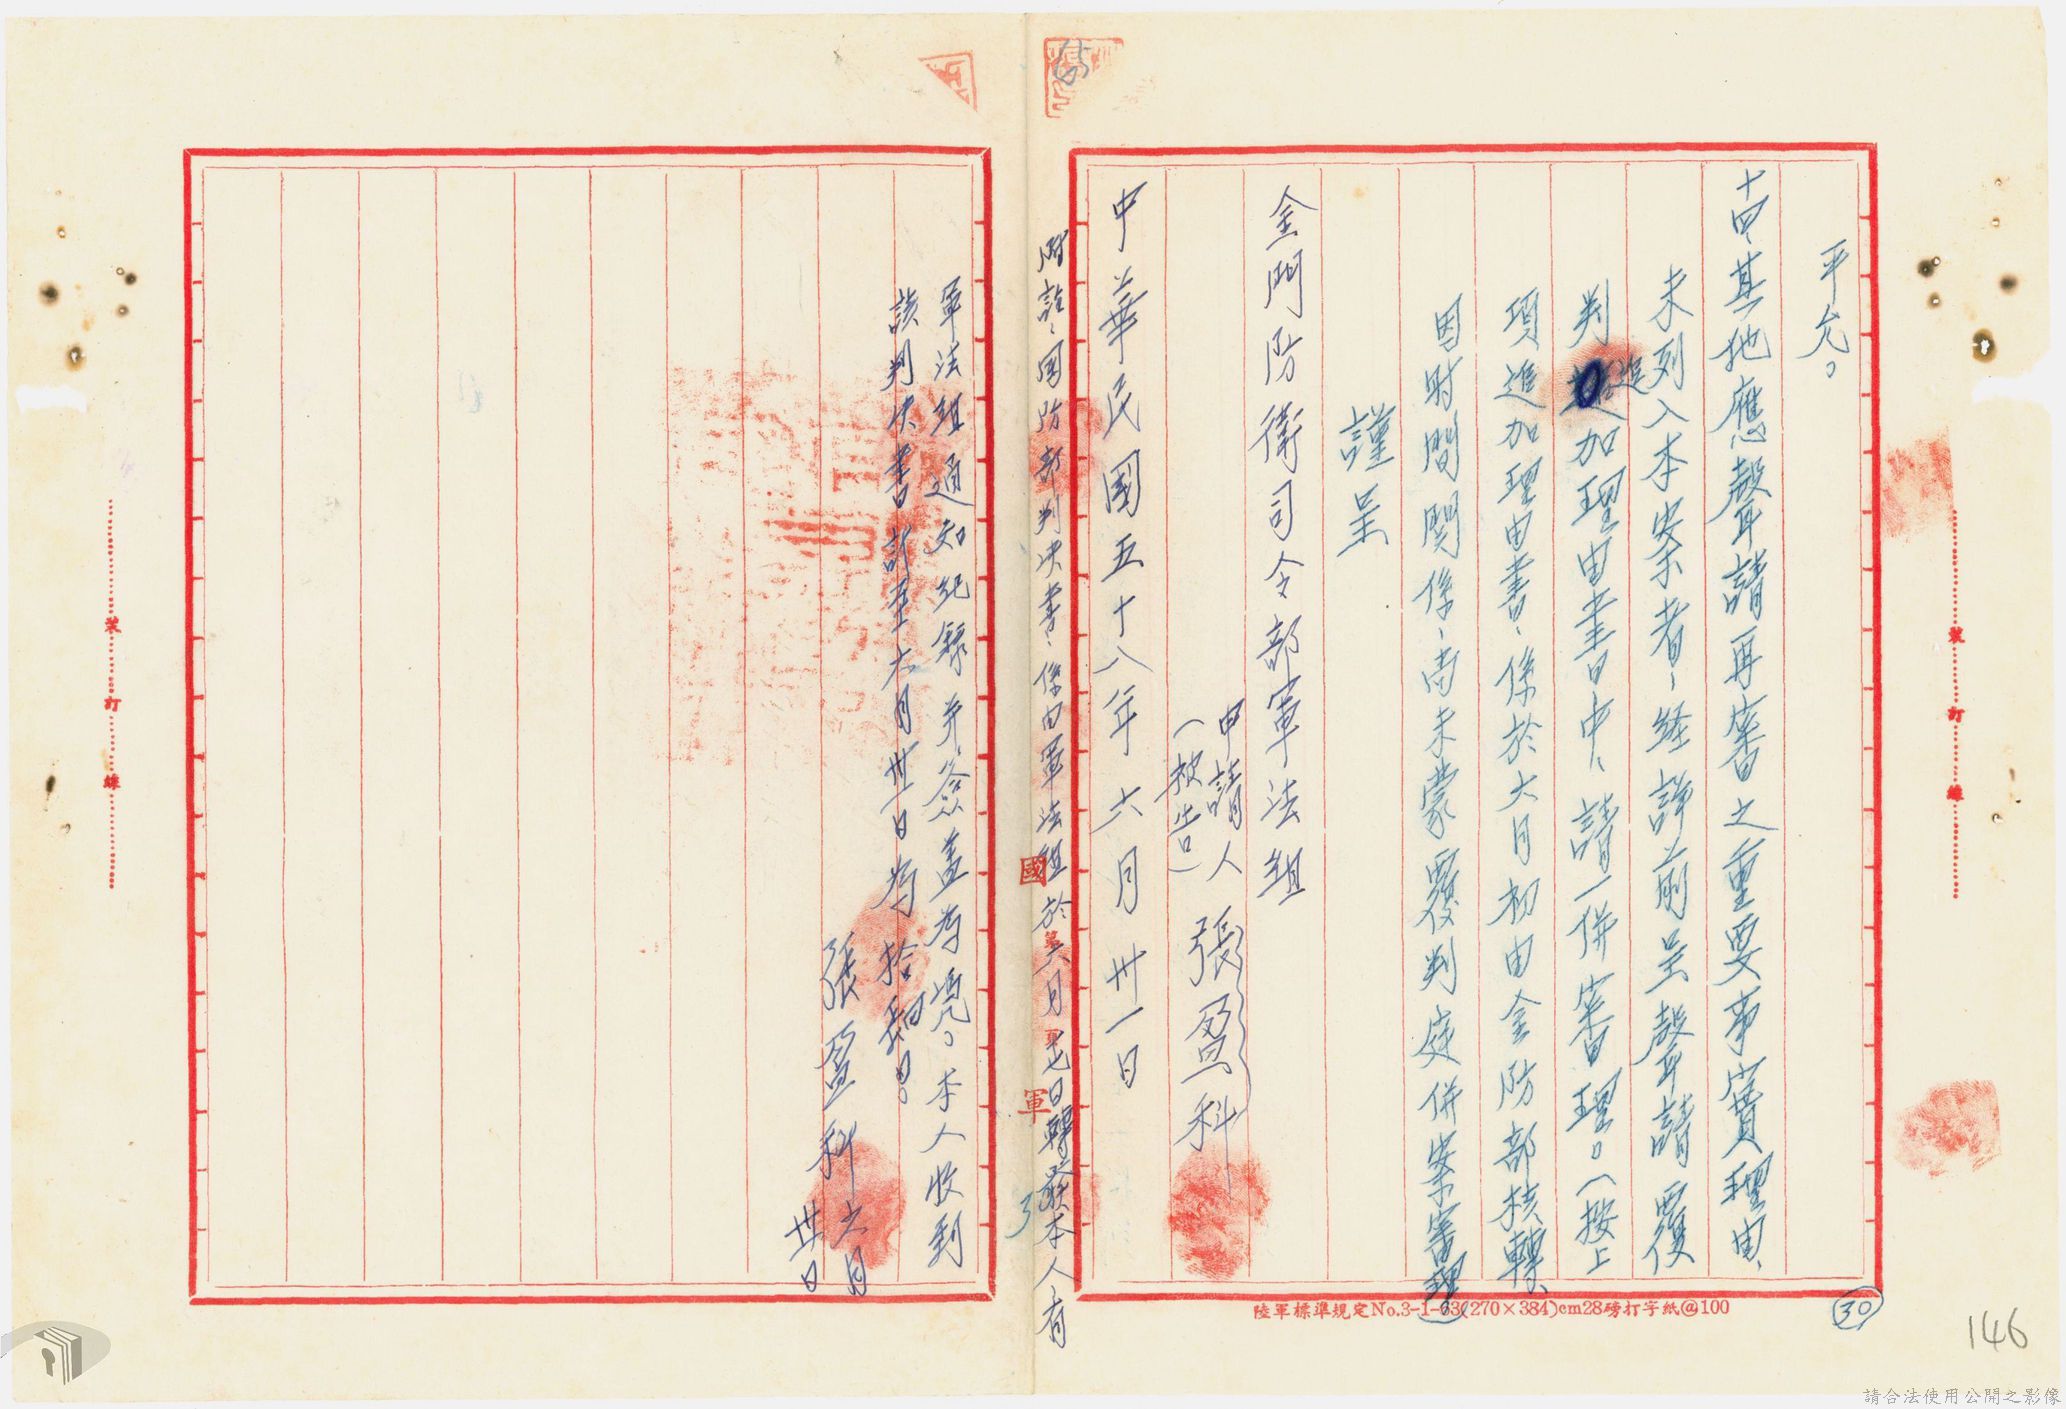 平允。
十四、其他應聲請再審之重要事實理由、
未列入本案者、經詳前呈聲請覆
判追加理由書中、請一併審理。(按上
項追加理由書、係於六月初由金防部核轉、
因時間関係、尚未蒙覆判庭併案審理)
謹呈
金門防衛司令部軍法組
申請人
(被告)
張盈科
中華民國五十八年六月卅一日
附註、国防部判决書、係由軍法組於六月廿七日轉發本人有
軍法組通知紀錄并簽盖為凭。本人收到
該判决書計至六月卅一日為拾日。
張盈科
六月
廿日
國
軍
第
頁
3
65
裝
訂
線
裝
訂
線
陸軍標準規定No.3-1-63(270×384)cm28磅打字紙@100
30
146
請合法使用公開之影像